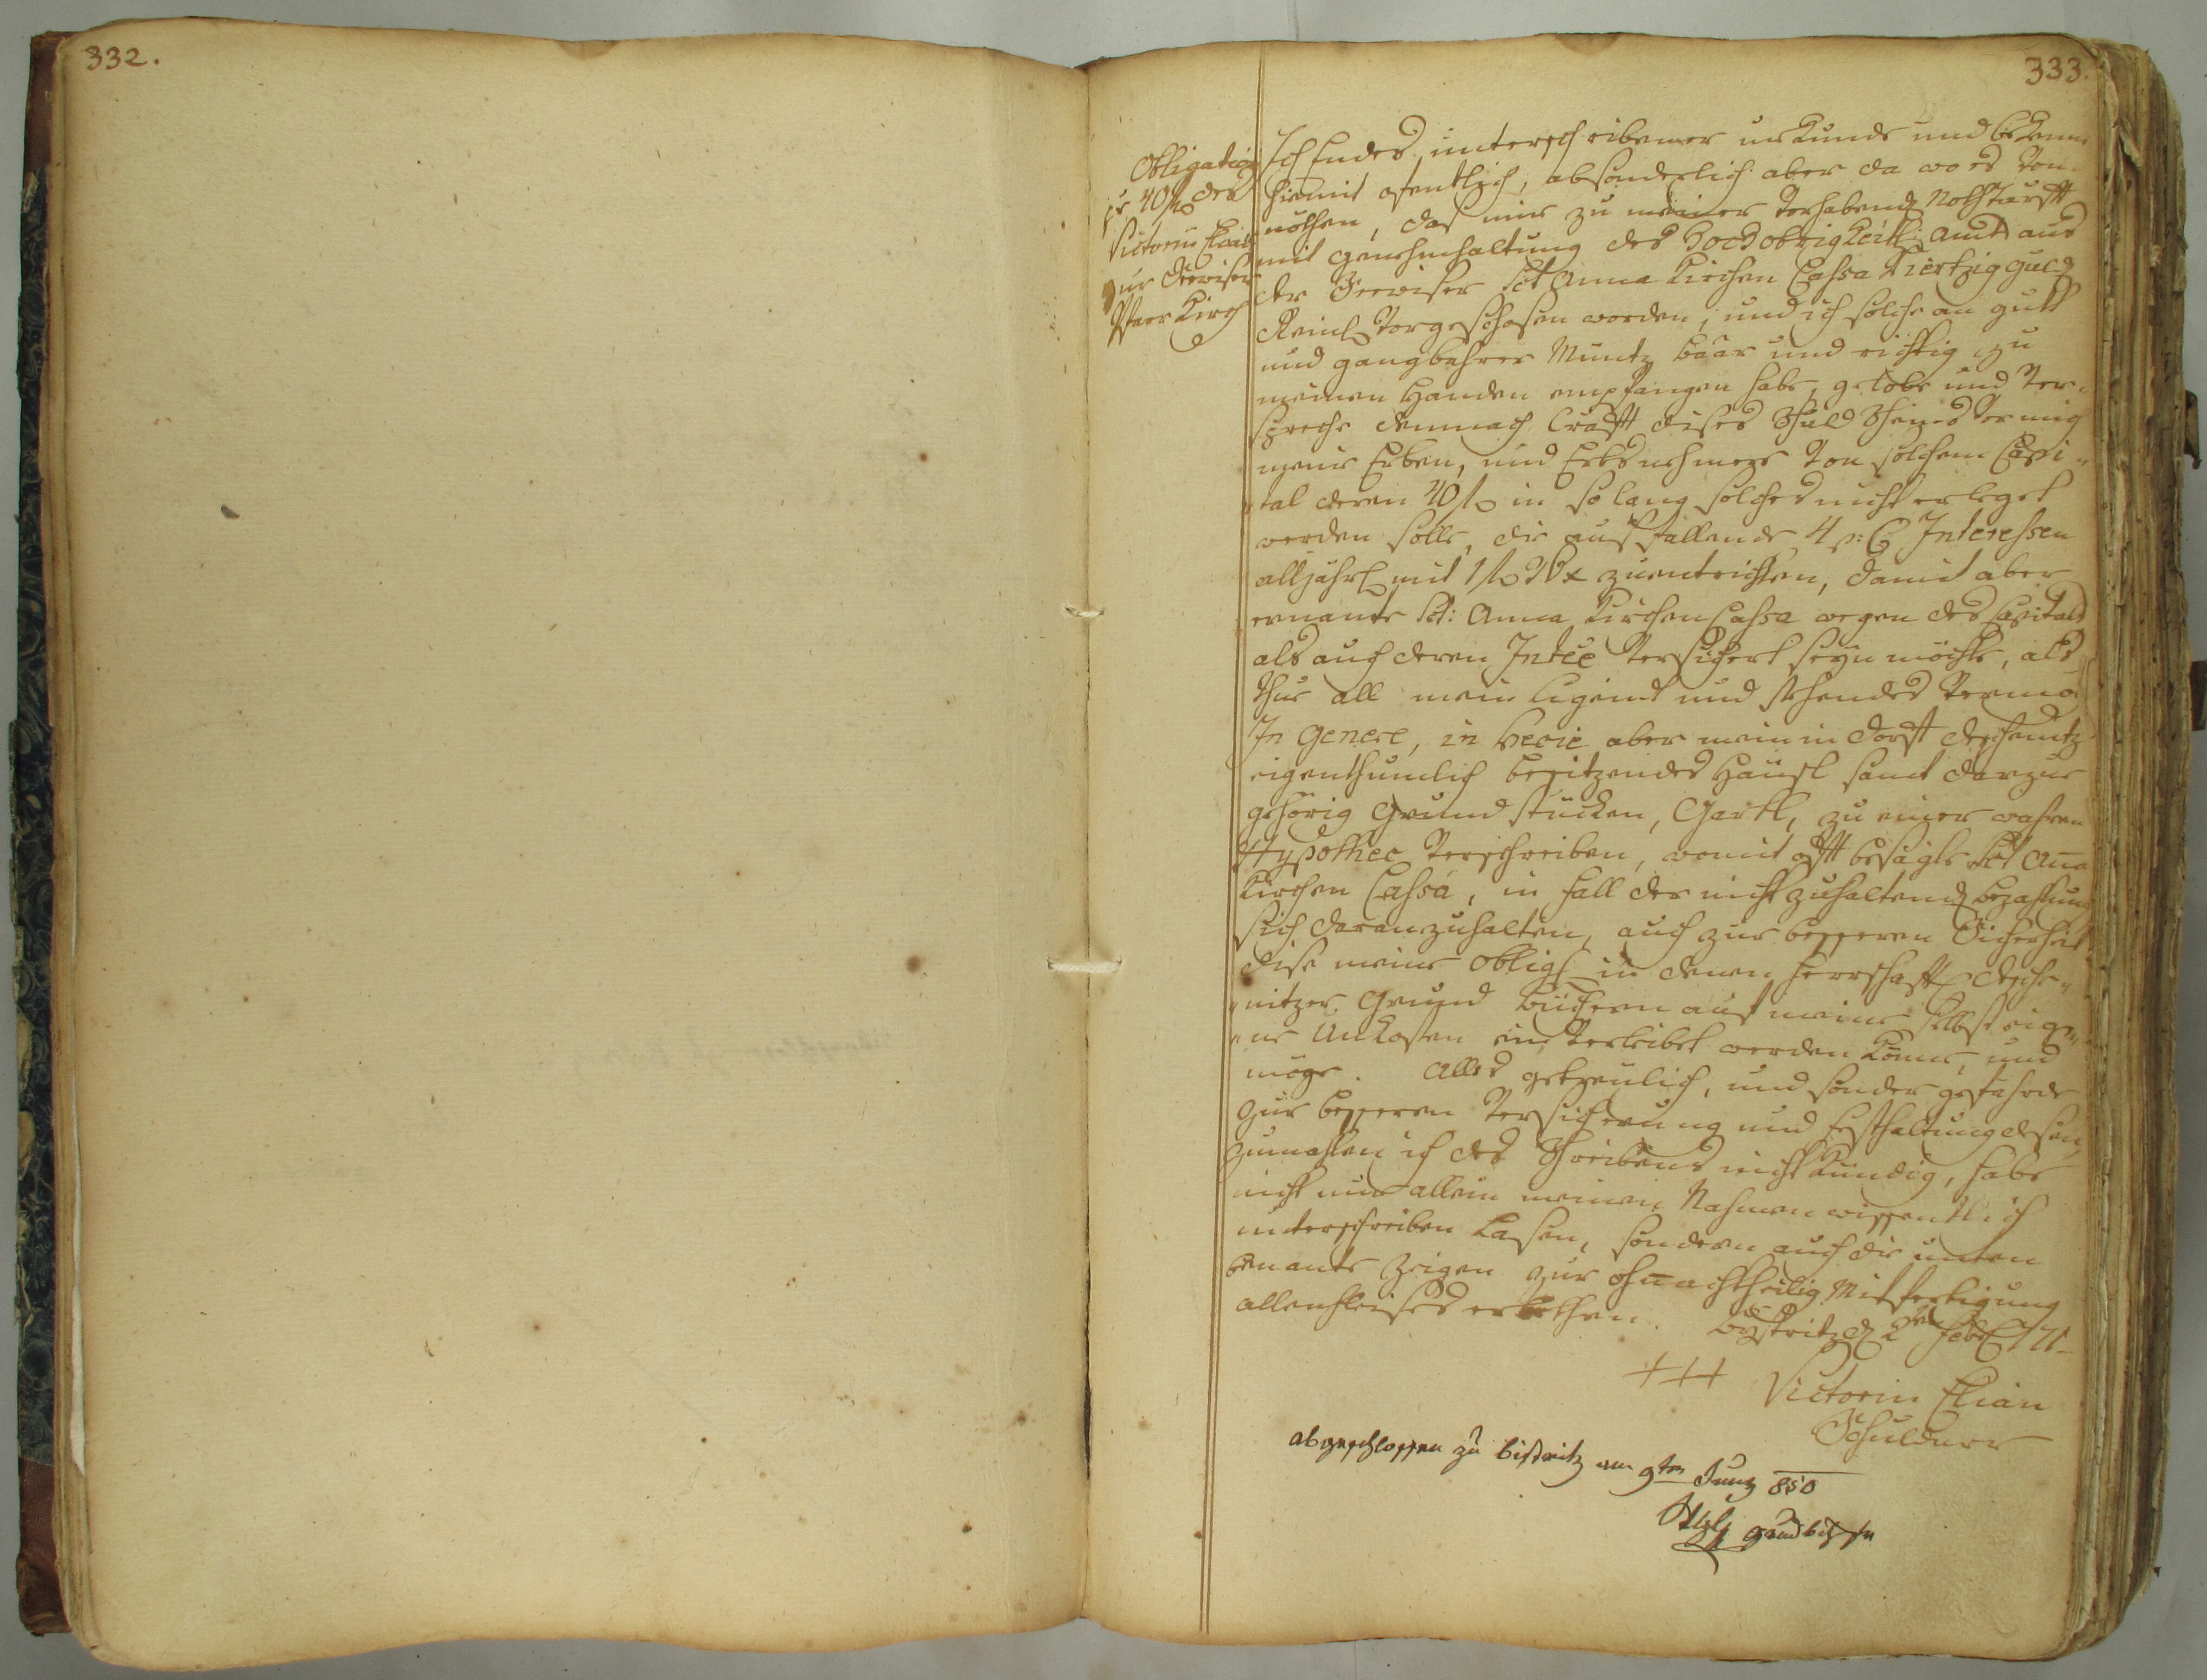 332.
333.
Obligation
pr 40 f des
Victorin Elian
zur
Pfarr Kirch
Ich Endes unterschribener urkunde und bekenne
hiemit ofentlich, absonderlich aber da wo es von
nöthen, das mir zu meiner vorhabend Nothturft
mit genehmhaltung des Hochobrigkeitl: Amts aus
der Sct Anna Kirchen Cassa Viertzig guld
Reinl vorgeschosen worden, und ich solche an gutt
und gangbahrer Müntz baar und richtig zu
meinen Handen empfangen habe, gelobe und ver„
spreche demnach Crafft dises Schuld Scheins vor mich
meine Erben, und Erbsnehmere von solchem Capi„
„tal deren 40 f in so lang solches nicht erleget
werden solle, die ausfallende 4 p: C Interessen
alljährl mit 1 f 36 x zuentrichten, damit aber
ernante Sct: Anna Kirchen Cassa wegen des Capitals
als auch deren Intée versichert seyn möchte, als
thue all mein ligend und stehendes
In Genere, in Specie aber mein in Dorff
eigenthumlich besitzendes Häusl samt darzue
gehörig Grundstücken, Gartl, zu einer wahren
Hypothec verschreiben, womit offt besagte Sct Ana
Kirchen Cassa, in fall der nicht zuhaltend bezahlung
sich daran zuhalten, auch zur besseren Sicherheit
dise meine Obligã in denen herrschafftl Desche„
„nitzer Grund büchern auf meine selbst eige„
„ne Unkosten einverleibet werden könne, und
möge. Alles getreulich, und sonder gefahrde
zur besseren versicherung und festhaltung desen,
zumahlen ich des Schreibens nicht kundig, habe
nicht nur allein meinen Nahmen wissentlich
unterschreiben lassen, sondern auch die unten
benante Zeigen zur ohnachtheilig Mitfertigung
allenfleises erbethen. Bystritz d 2ten Febr
+++ Victorin Elian
Schuldner
abgeschlossen zu Bistritz am 9ten Juny 850